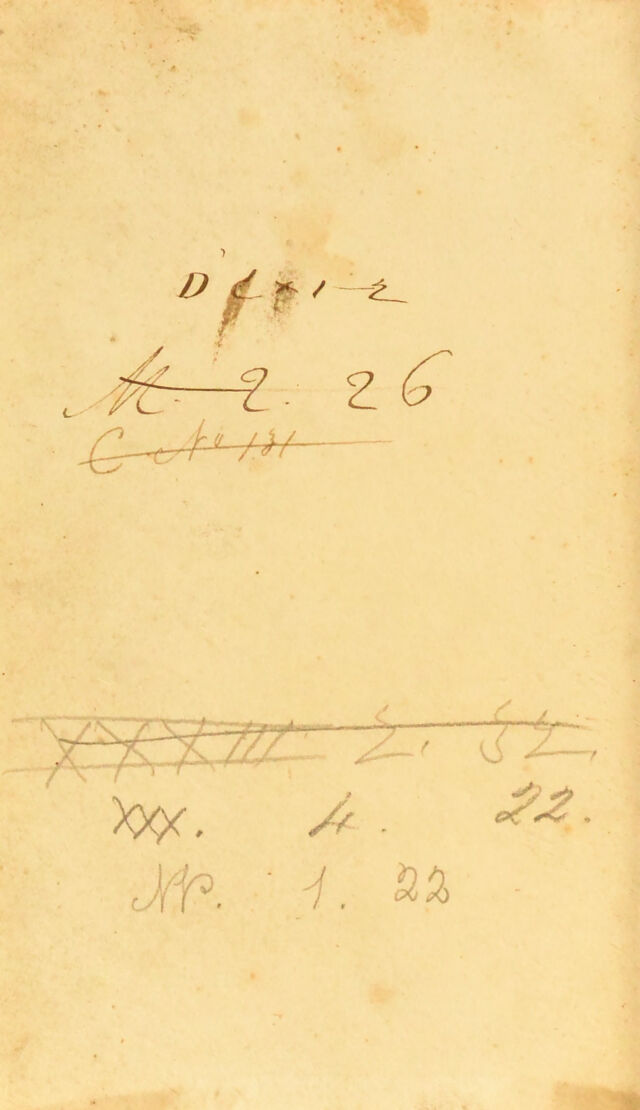 M. 2. 26
C No 131
XXXIII 2. 32.
XXX. 4. 22.
NN. 1. 22